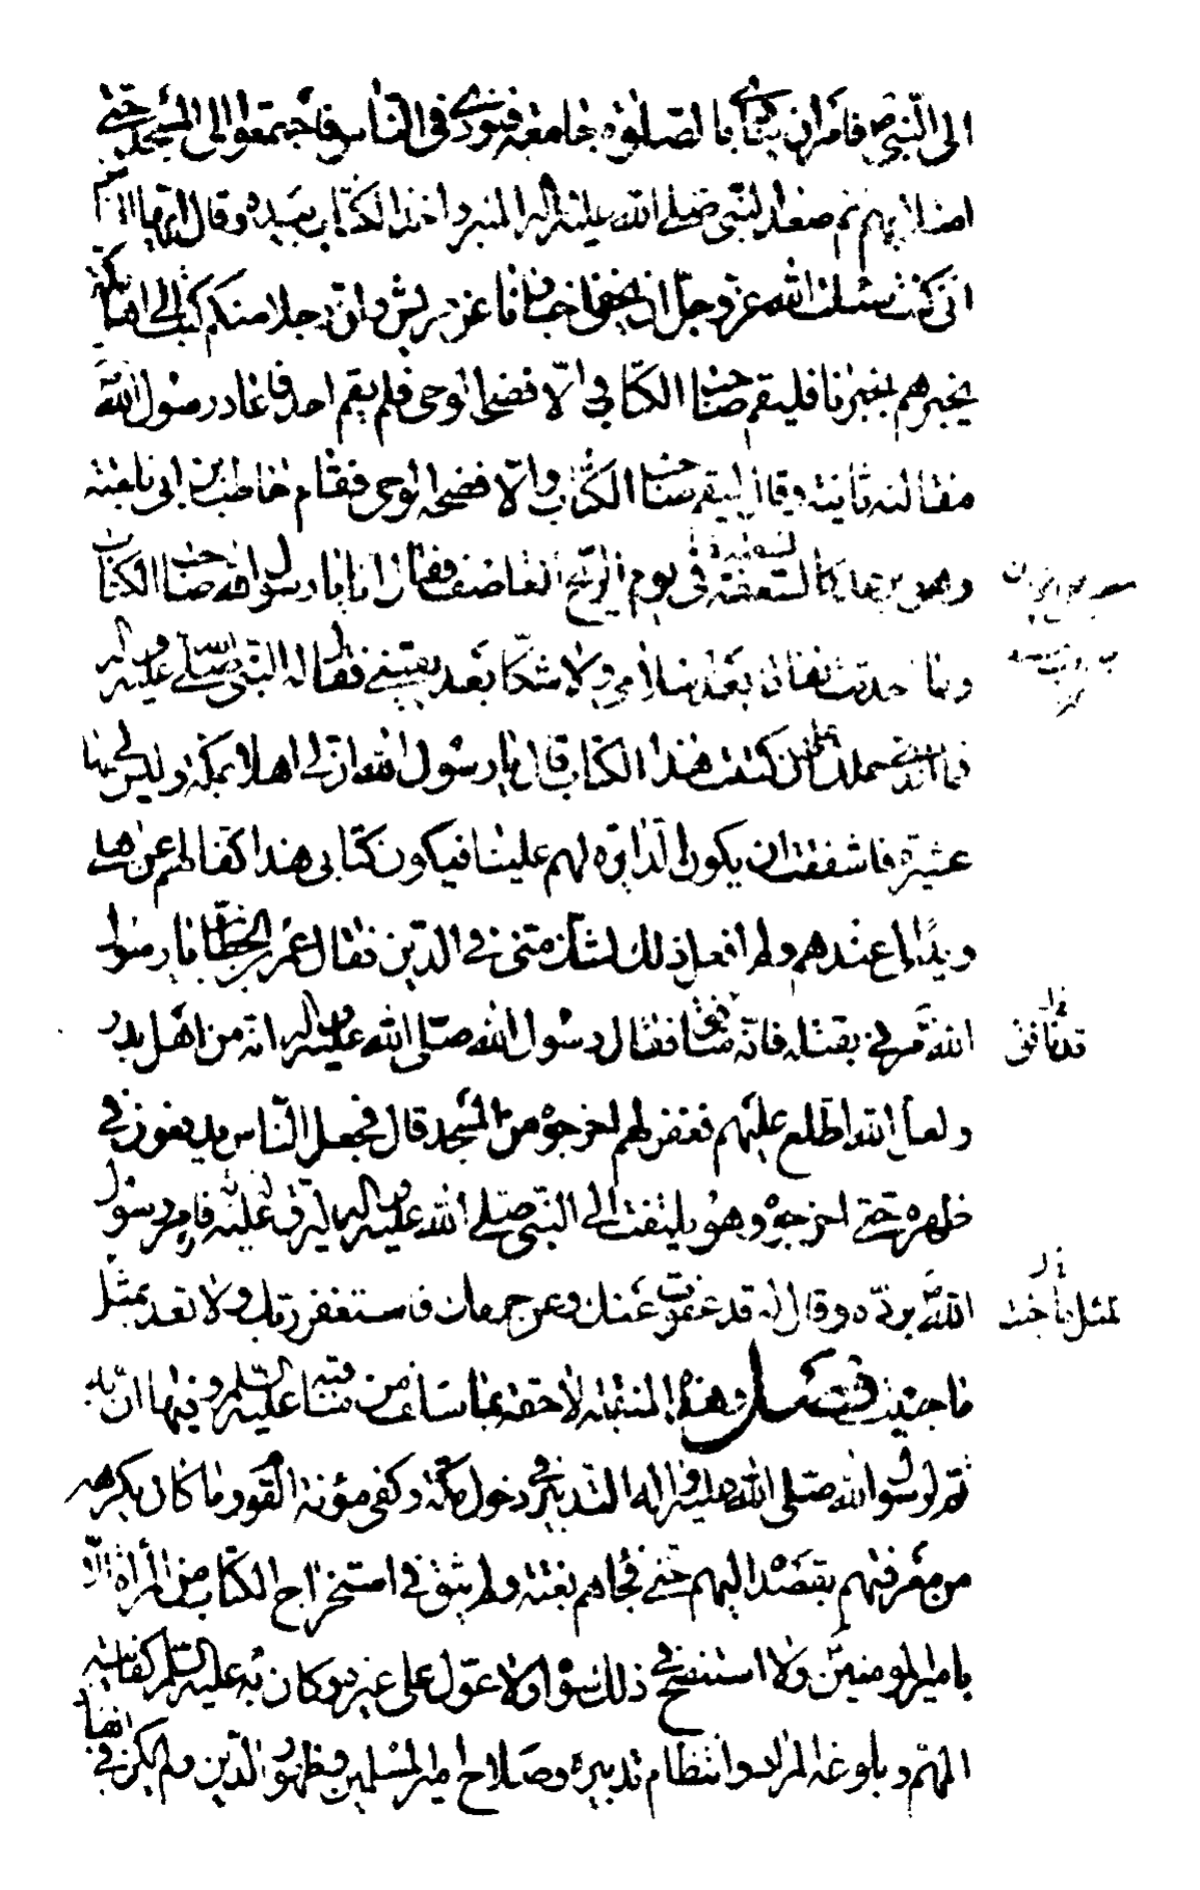 الى النبي ص فامر ان ينادى بالصلوة جامعة فنودى فى الناس فاجتمعوا الى المسجد حتى
امتلا بهم ثم صعد النبى صلى الله عليه واله المنبر واخذ الكتاب بيده وقال ايها الناس
انى كنت سئلت الله عز وجل ان يخفى اخبارنا عن قريش وان رجلا منكم كتب الى اهل مكة
يخبرهم بخبرنا فليقم صاحب الكتاب والا فضحه الوحى فلم يقم احد فاعاد رسول الله
مقالته ثانية وقال ليقم صاحب الكتاب والا فضحه الوحى فقام حاطب بن ابى بلتعة
وهو يرعد كالسعفة فى يوم الريح العاصف فقال انا يا رسول الله صاحب الكتاب
وما احدثت نفاقا بعد اسلامى ولا شكا بعد يقينى فقال له النبى صلى الله عليه واله
فما الذى حملك على ان كتبت هذا الكتاب قال يا رسول الله ان لى اهلا بمكة وليس لى بها
عشيرة فاشفقت ان يكون الدائرة لهم علينا فيكون كتابى هذا كفا لهم عن اهلى
ويدا لى عندهم ولم افعل ذلك لشك منى فى الدين فقال عمر بن الخطاب يا رسول
الله مرنى بقتله فانه منافق فقال رسول الله صلى الله عليه واله انه من اهل بدر
قد نافق
ولعل الله اطلع عليهم فغفر لهم اخرجوه من المسجد قال فجعل الناس يدفعون فى
ظهره حتى اخرجوه وهو يلتفت الى النبى صلى الله عليه واله ليرق عليه فامر رسول
الله برده وقال له قد عفوت عنك وعن جرمك فاستغفر ربك ولا تعد بمثل
لمثل ما جنيت
ما جنيت فصل وهذه المنقبة لاحقة بما سلف من مناقبه عليه السلم وفيها ان به
تم لرسول الله صلى الله عليه واله التدبير فى دخول مكة وكفى مؤنة القوم وما كان يكرهه
من معرفتهم بقصده اليهم حتى فجاهم بغتة ولم يثق فى استخراج الكتاب من المراة الا
بامير المومنين ولا استنصح فى ذلك سواه ولا عول على غيره وكان به عليه السلم كفايته
المهم وبلوغه المراد وانتظام تدبيره وصلاح امر المسلمين وظهور الدين ولم يكن فى انفاذ